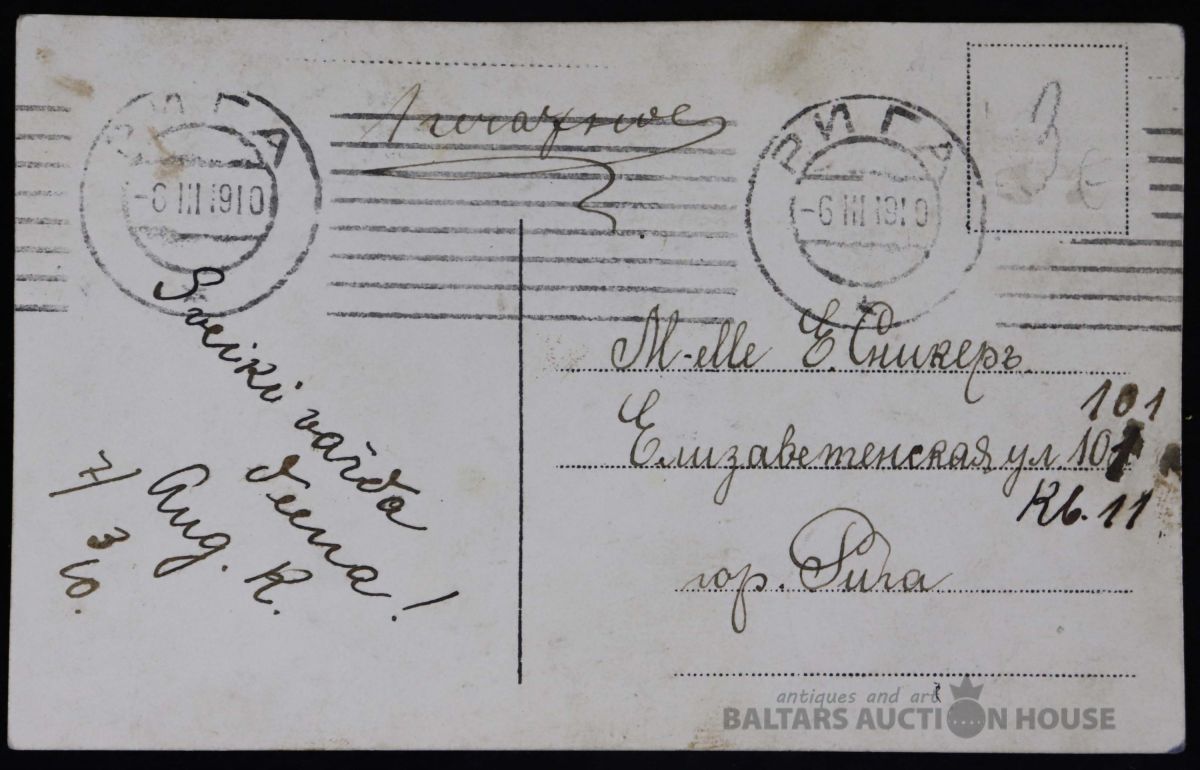 РИГА
-6 III 1910
РИГА
-6 III 1910
3
Sveiki vārda
deena!
Aug. K.
7/
3
10.
M-elle Е. Сникеръ.
101
Елизаветенская ул. 101
Кв. 11
гор. Рига
antiques and art
BALTARS AUCTION HOUSE